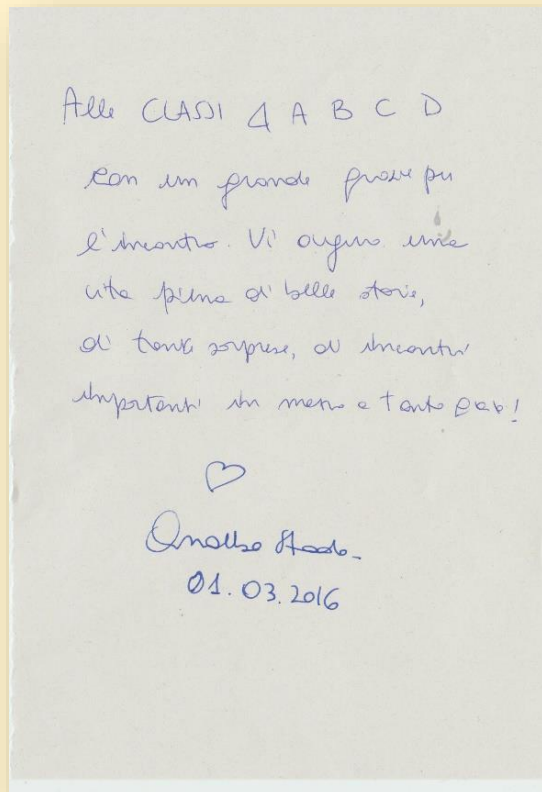 Alle CLASSI 4 A B C D
con un grande grazie per
l'incontro. Vi auguro una
vita piena di belle storie,
di tante sorprese, di incontri
importanti in mezzo a tanto
01.03.2016